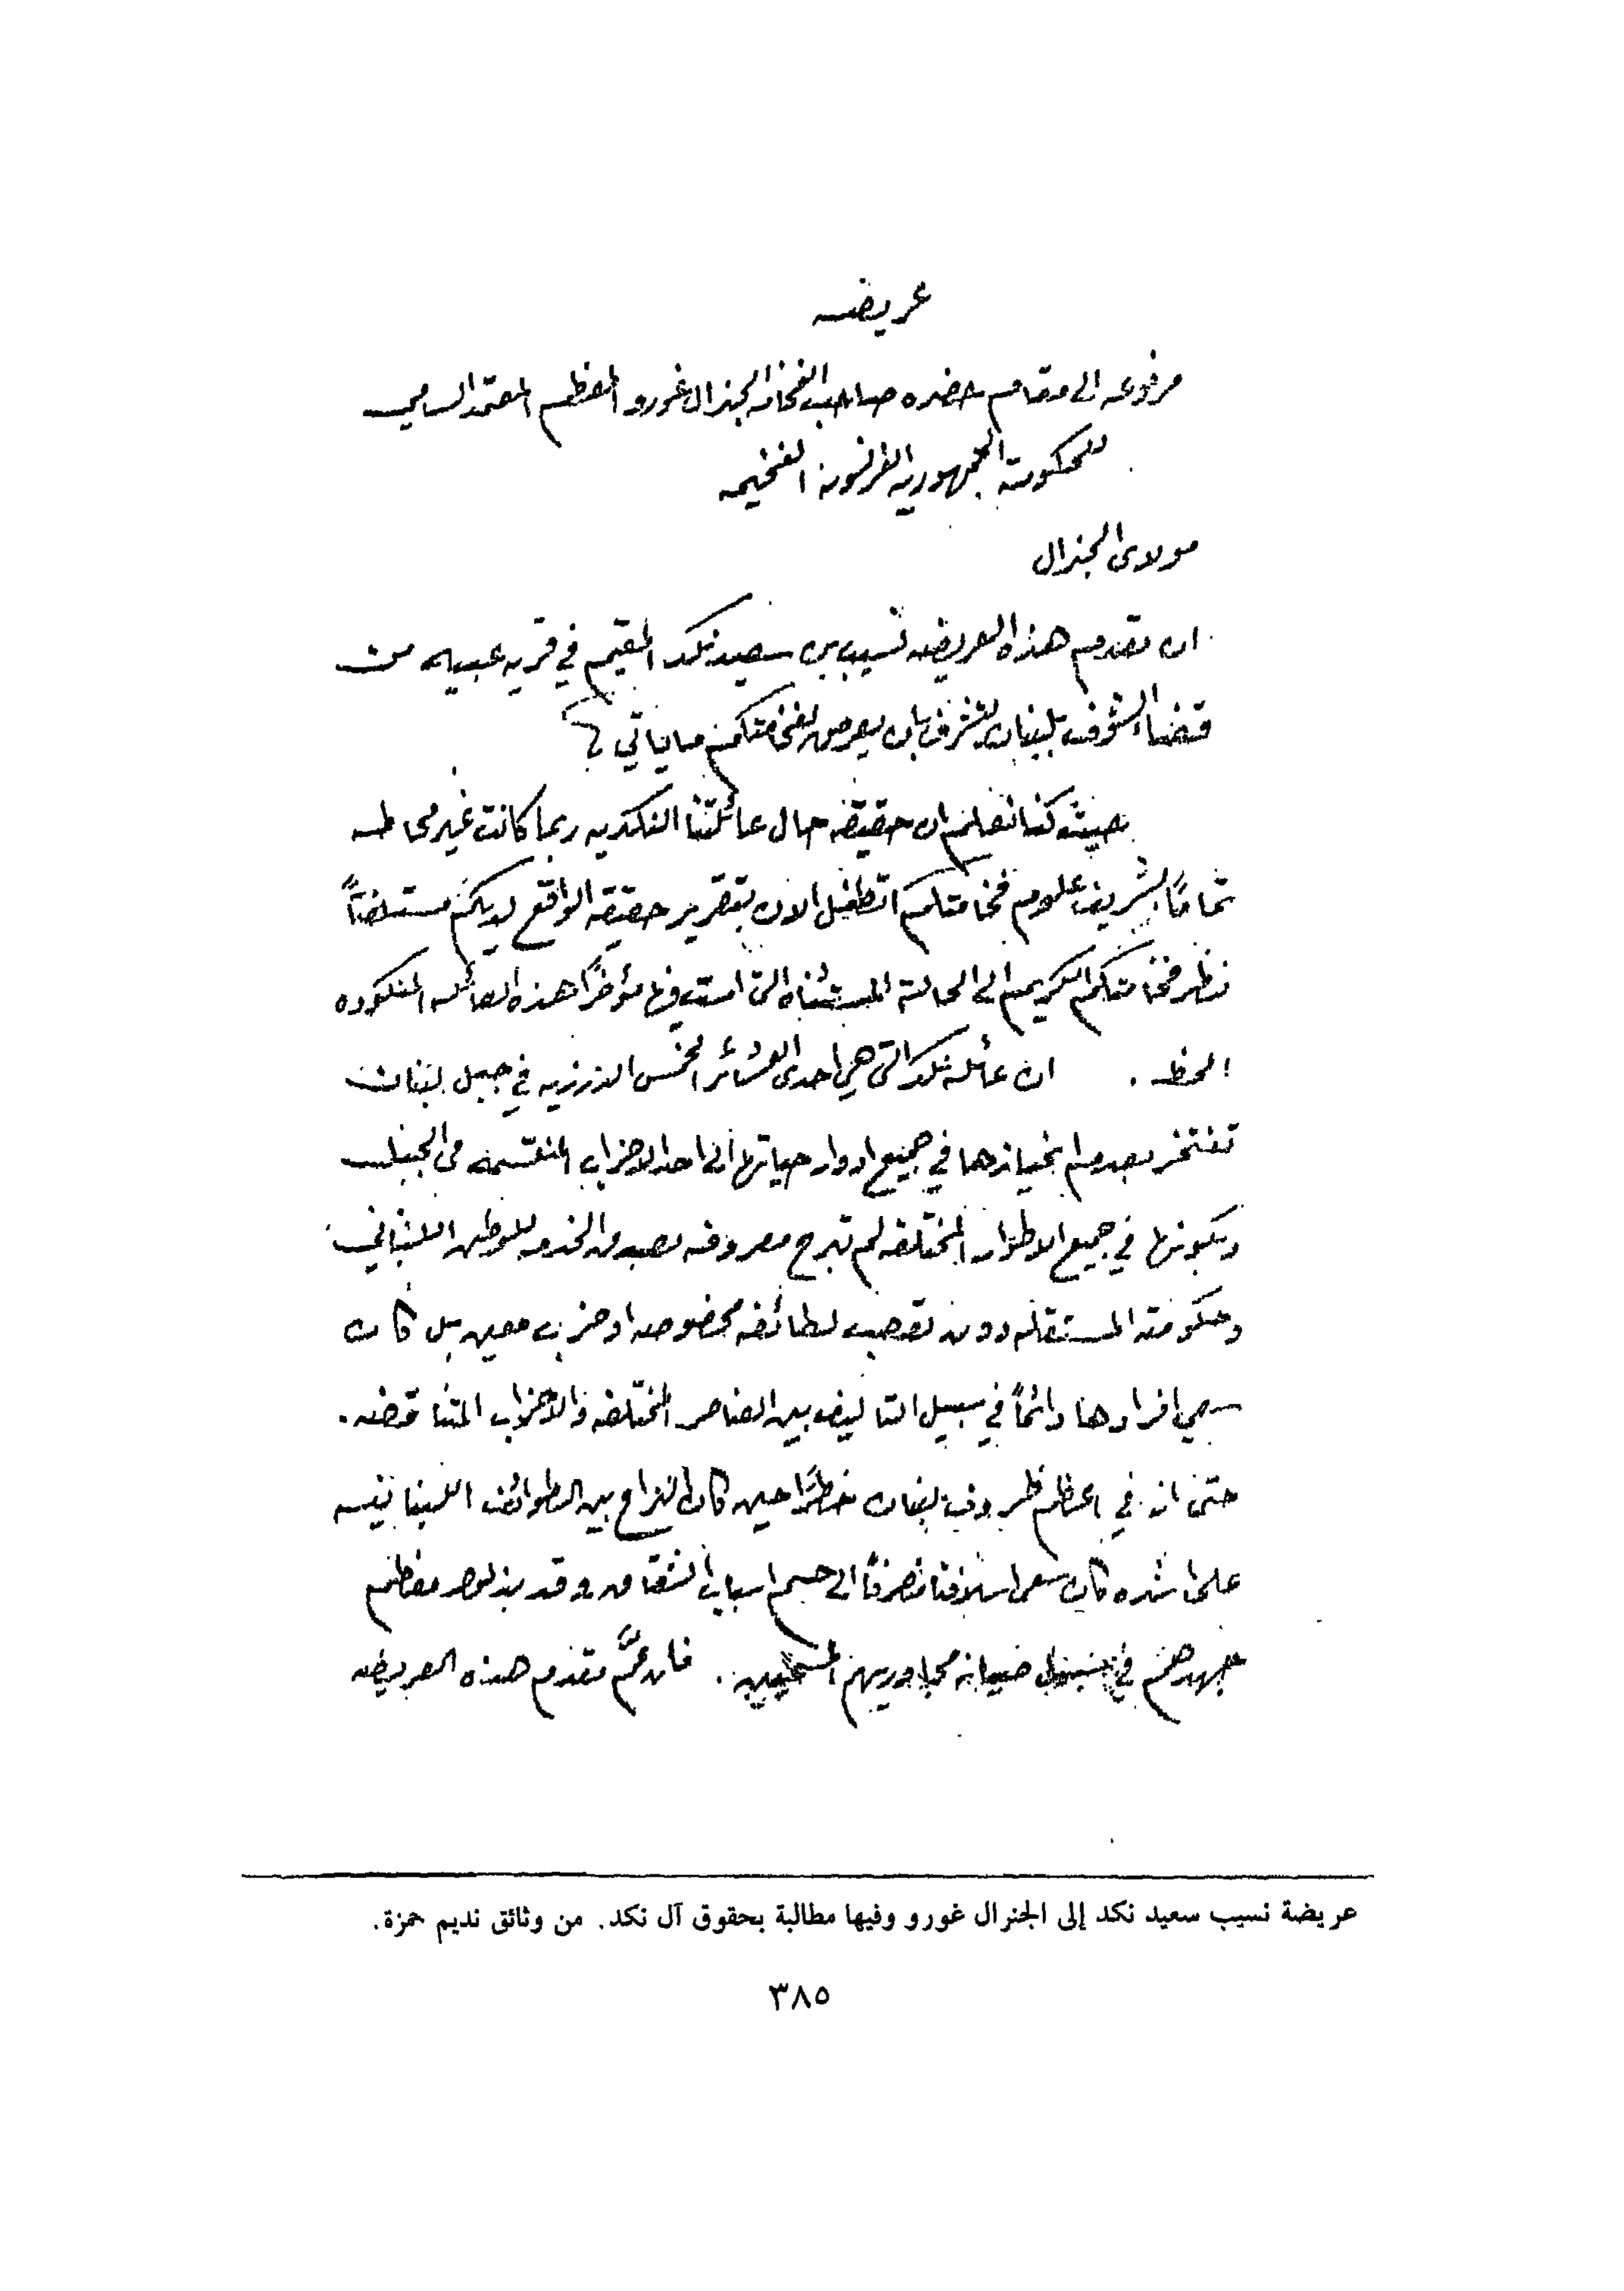 عريضه
مرفوعه الى مقام حضره صاحب الفخامه الجنرال غورو المعظم المعتمد السامي
للحكومة الجمهوريه الفرنسوية الفخيمه
مولاى الجنرال
ان مقدم هذه العريضه نسيب بن سعيد نكد المقيم في قريه عبيه من
قضاء الشوف بلبنان يتشرف بان يعرض لفخامتكم ما ياتي
بحيث كنا نعلم ان حقيقة حال عائلتنا النكديه ربما كانت غير محاطه
تمامًا بشريف علوم فخامتكم اتطفل الان بتقرير حقيقة الواقع لديكم مستلفتًا
نظر فخامتكم الكريم الى الحالة المستثناه التى امست فيها مؤخرًا هذه العائله المنكوده
الحظ . ان عائلة نكد التى هي احدى العشائر الخمس الدرزيه في جبل لبنان
تفتخر بعدم انحيازها في جميع ادوار حياتها الى احد الاحزاب المنقسمه فى الجبل
وبكونها في جميع الاطوار المختلفه لم تبرح معروفه بصدق الخدمه للوطن اللبناني
وحكومته المستقله دون تعصب لطائفه مخصوصه او حزب معين بل كان
سعي افرادها دائمًا في سبيل التاليف بين العناصر المختلفه والاحزاب المتناقضه.
حتى انه في اعظم ظروف لبنان خطرًا حين كان النزاع بين الطوائف اللبنانيه
على اشده كان سعى اسلافنا منصرفًا الى حسم اسباب الشقاق وقد بذلوا معظم
جهدهم في سبيل صيانة مجاوريهم المسيحيين. فان عمّ مقدم هذه العريضه
عريضة نسيب سعيد نكد إلى الجنرال غورو وفيها مطالبة بحقوق آل نكد. من وثائق نديم حمزة.
٣٨٥